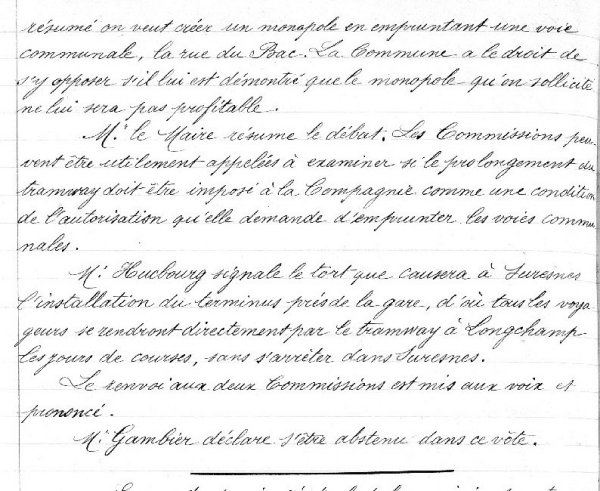 résumé on veut créer un monopole en empruntant une voie
communale, la rue du Bac. La Commune a le droit de
s'y opposer s'il lui est démontré que le monopole qu'on sollicite
ne lui sera pas profitable.
M. le Maire résume le débat. Les Commissions peu-
vent être utilement appelées à examiner si le prolongement du
tramway doit être imposé à la Compagnie comme une condition
de l'autorisation qu'elle demande d'emprunter les voies commu
nales.
M. Hucbourg signale le tort que causera à Suresnes
l'installation du terminus près de la gare, d'où tous les voya
geurs se rendront directement par le tramway à Longchamp
les jours de courses, sans s'arrêter dans Suresnes.
Le renvoi aux deux Commissions est mis aux voix et
prononcé.
M. Gambier déclare s'être abstenu dans ce vote.